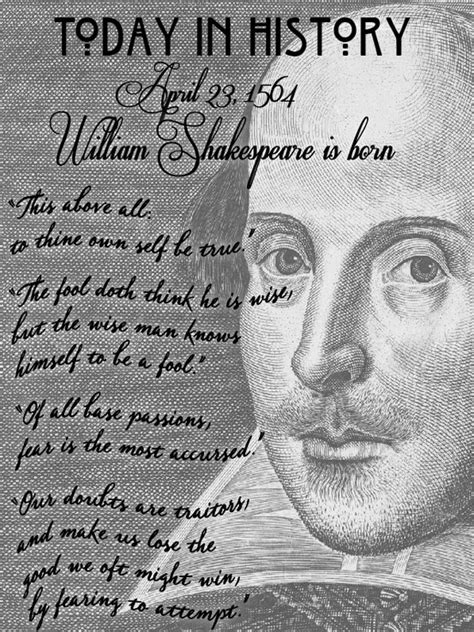 TODAY IN HISTORY
April 23, 1564
William Shakespeare is born
"This above all:
to thine own self be true."
"The fool doth think he is wise,
but the wise man knows
himself to be a fool."
"Of all base passions,
fear is the most accursed."
"Our doubts are traitors,
and make us lose the
good we oft might win,
by fearing to attempt."